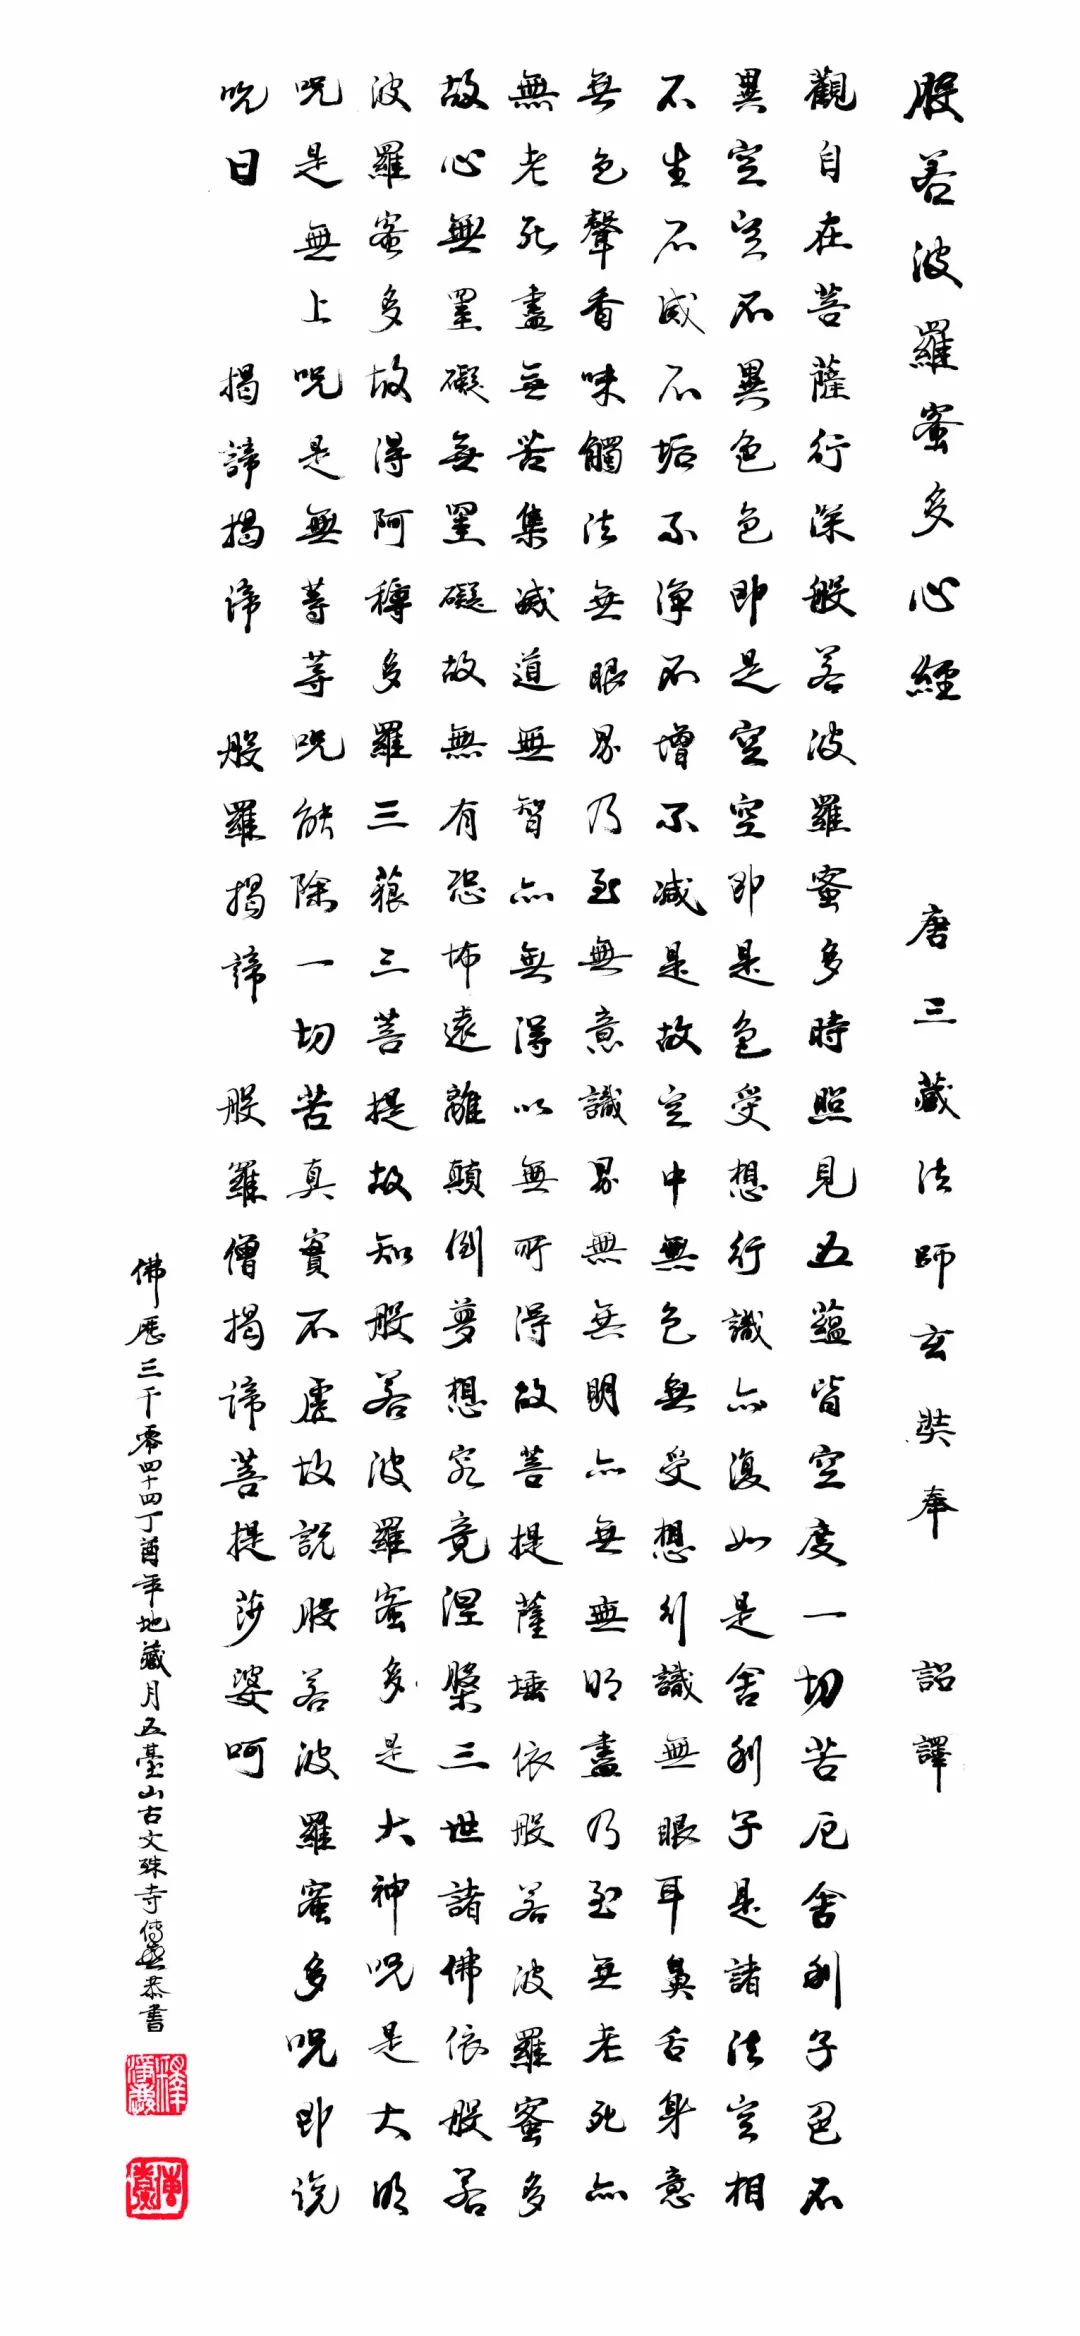 般若波羅蜜多心經 唐三藏法師玄奘奉 詔譯
觀自在菩薩行深般若波羅蜜多時照見五蘊皆空度一切苦厄舍利子色不
異空空不異色色即是空空即是色受想行識亦復如是舍利子是諸法空相
不生不滅不垢不淨不增不減是故空中無色無受想行識無眼耳鼻舌身意
無色聲香味觸法無眼界乃至無意識界無無明亦無無明盡乃至無老死亦
無老死盡無苦集滅道無智亦無得以無所得故菩提薩埵依般若波羅蜜多
故心無罣礙無罣礙故無有恐怖遠離顛倒夢想究竟涅槃三世諸佛依般若
波羅蜜多故得阿耨多羅三藐三菩提故知般若波羅蜜多是大神呪是大明
呪是無上呪是無等等呪能除一切苦真實不虛故說般若波羅蜜多呪即說
呪曰 揭諦揭諦 般羅揭諦 般羅僧揭諦菩提莎婆呵
佛曆三千零四十四丁酉年地藏月五臺山古文殊寺傳恭書